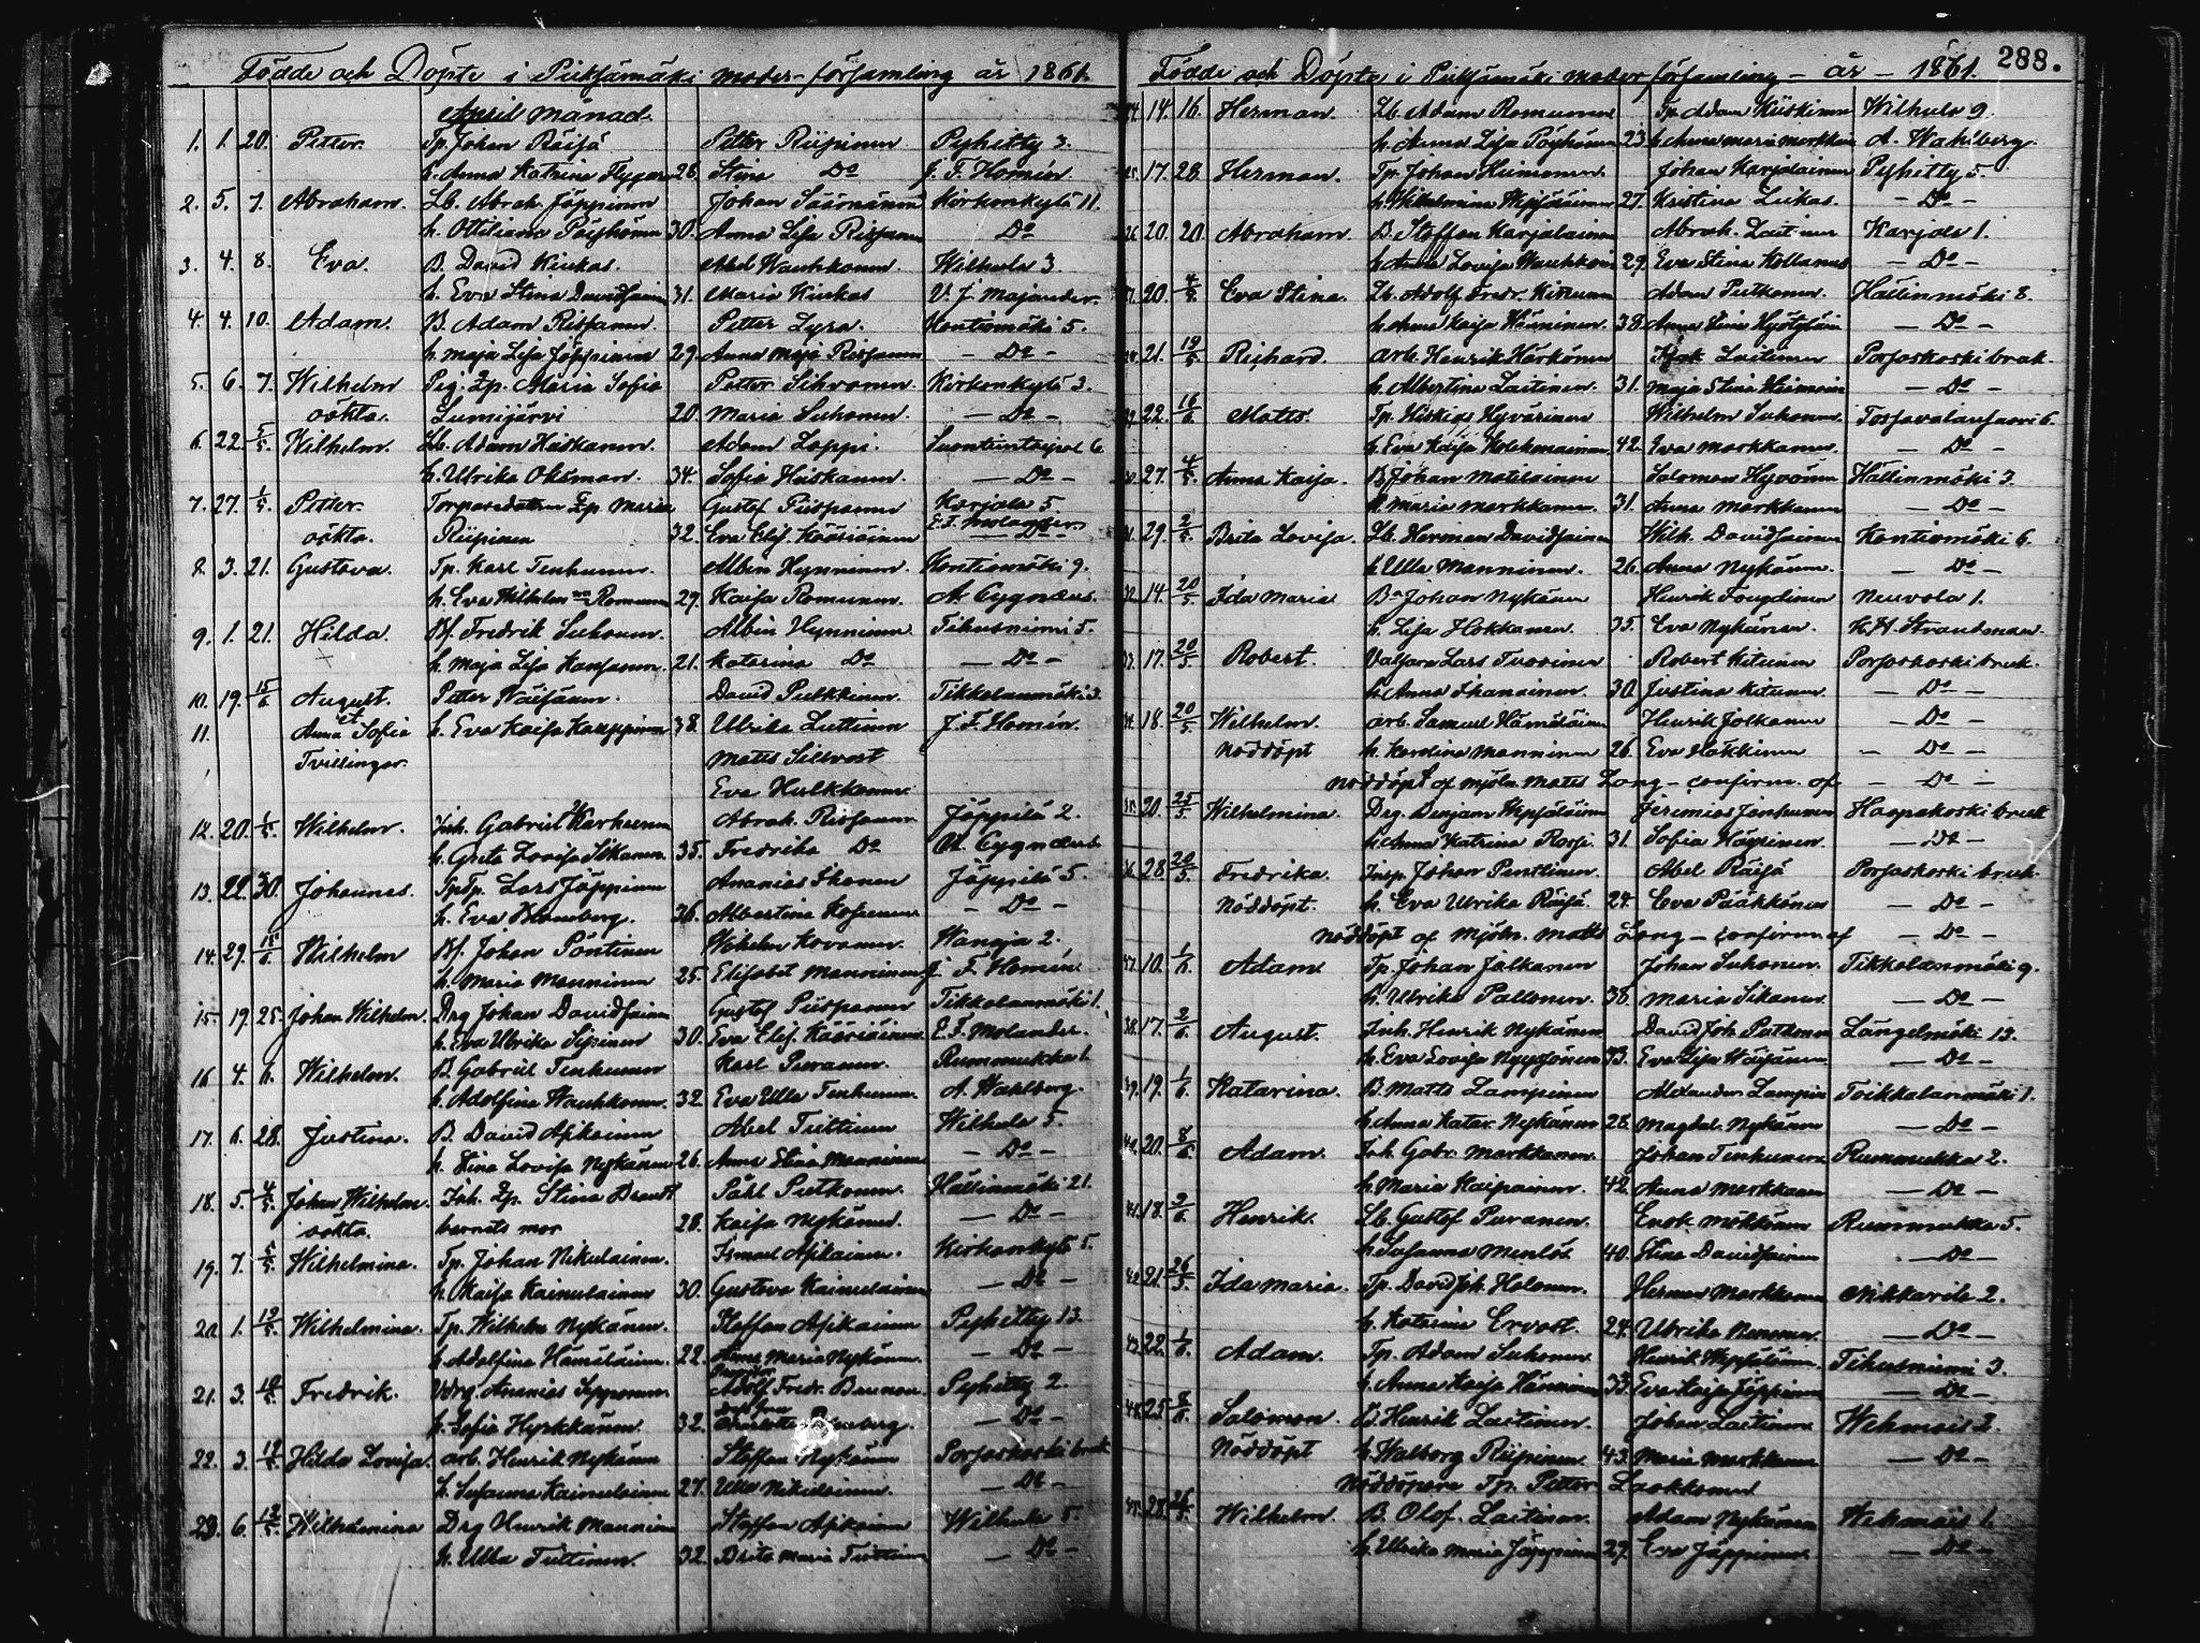 Födde och Döpte i Pieksämäki moder-församling år 1861.
April månad.
1. 1. 20. Petter. Tp. Johan Räisä Petter Riipinen Pyhitty 3.
h. Anna Katrina Flygare 26. Stina Do J. F. Homén.
2. 5. 7. Abraham. Lb. Abrah. Jäppinen Johan Kirkonkylä 11.
h. Ottiliana Pöyhönen 30. Anna Lisa Rissanen Do
3. 4. 8. Eva. B. David Kiukas. Abel Wauhkonen. Wilhula 3
h. Eva Stina Davidsainen 31. Maria Kiukas V. J. Majander.
4. 4. 10. Adam. B. Adam Rissanen. Petter Lyra. Kontiomäki 5.
h. Maja Lisa Jäppinen 29. Anna Maja Rissanen - Do -
5. 6. 7. Wilhelm Pig. Ip. Maria Sofia Petter Sihvonen. Kirkonkylä 3.
oäkta. Lumijärvi 20. Maria Suhonen. - Do -
6. 22. 5/5. Wilhelm. Lb. Adam Hiiskanen. Adam Loppi. 6
h. Ulrika Oksman. 34. Sofia Hiiskanen. - Do -
7. 27. 1/5. Petter Ip. Maria Gustaf Piispanen Karjala 5
oäkta. Riipinen 32. Eva Elis. Kääriäinen E. F. Molander. - Do -
8. 3. 21. Gustava. Tp. Karl Tenhunen. Albin Hynninen. Kontiomäki 9.
h. Eva Wilhelm:na Romunen 29. Kaisa Romunen. A Cygnæus.
9. 1. 21. Hilda. Bf. Fredrik Suhonen. Albin Hynninen Tihusniemi 5.
h. Maja Lisa 21. Katarina Do - Do -
10. 19. 15/6 August. Petter Wäisänen. David Pulkkinen. Tikkalanmäki 3.
11. et Anna Sofia h. Eva Kaisa Kauppinen 38. Ulrika Luttinen J. F. Homén.
Tvillingar. Matts Silvast
Eva Hulkkonen
12. 20. 1/5. Wilhelm. Inh. Gabriel Karhunen Abrah. Rissanen Jäppilä 2.
h. Greta Lovisa Sikanen 35. Fredrika Do A. Cygnæus
13. 22. 30. Johannes. Lars Jäppinen Ananias Ihanen Jäppilä 5.
h. Eva Bromberg. 36. Albertina - Do -
14. 29. 15/6 Wilhelm Bf. Johan Pöntinen Wilhelm Kovanen. Wanaja 2.
h. Maria Manninen 25. Elisabet Manninen J. F. Homén.
15. 19. 25. Johan Wilhelm. Drg Johan Davidsainen Gustaf Piispanen Tikkalanmäki 1.
h. Eva Ulrika Sipinen 30. Eva Elis. Kääriäinen E. F. Molander.
16. 4. 6. Wilhelm. B. Gabriel Tenhunen Karl Puranen. Rummukka 1.
h. Adolfina Wauhkonen. 32 Eva Ulla Tenhunen. A. Wahlberg.
17. 6. 28. Justina. B. David Asikainen Abel Tuttinen Wilhula 5.
h. Stina Lovisa Nykänen 26. Anna Stina Manninen - Do -
18. 5. 4/5. Johan Wilhelm. Inh. Ip. Stina Brandt Påhl Putkonen. Hällinmäki 21.
oäkta. barnets mor 28. Kaisa Nykänen. - Do -
19. 7. 5/5. Wilhelmina. Tp. Johan Nikulainen. Ismael Asikainen. Kirkonkylä 5.
h. Kaisa Kainulainen 30. Gustava Kainulainen - Do -
20. 1. 19/5. Wilhelmina. Tp. Wilhelm Nykänen. Staffan Asikainen Pyhitty 13
h. Adolfina Hämäläinen. 22. Anna Maria Nykänen. - Do -
21. 3. Fredrik. Vdrg. Ananias Adolf Fredr. Brunou. Pyhitty 2.
h. Sofia Hyrkkänen 32. - Do -
22. 3. 19/5. Hilda Lovisa. arb. Henrik Nykänen Staffan Nykänen Porsaskoski bruk
h. Susanna Kainulainen 27. Ulla Nikulainen. - Do -
23. 6. 19/5. Wilhelmina Drg Henrik Manninen Staffan Asikainen Wilhula 5.
h. Ulla Tuttinen. 32. Brita Maria Tuttinen - Do -
Födde och Döpte i Pieksämäki moder församling - år - 1861. 288.
24. 14. 16. Herman. Lb. Adam Romunen Tp. Adam Kiiskinen Wilhula 9.
h. Anna Lisa Pöyhönen 23. h. Anna Maria Markkanen A. Wahlberg.
25. 17. 28. Herman. Tp. Johan Heimonen. Johan Karjalainen Pyhitty 5.
h. Wilhelmina Wepsäläinen 27. Kristina Liukas. - Do -
26. 20. 20. Abraham. B. Staffan Karjalainen Abrah. Laitinen Karjala 1.
h. Anna Lovisa Wauhkonen 29. Eva Stina Kollanus - Do -
27. 20. 4/5. Eva Stina. Lb. Adolf Fredr. Kitunen Adam Putkonen. Hällinmäki 8.
h. Anna Kaisa Hänninen. 38. Anna Stina - Do -
28. 21. 19/5 Richard. arb. Henrik Härkönen Isak Laitinen Porsaskoski bruk.
h. Albertina Laitinen. 31. Maja Stina Heimonen - Do -
29. 22. 16/6. Matts. Tp. Hiskias Hyvärinen Wilhelm Suhonen. 6.
h. Eva Kaisa Kolehmainen 42. Eva Markkanen. - Do -
30. 27. 4/5. Anna Kaisa. B. Johan Matilainen Salomon Hyvönen Hällinmäki 3.
h. Maria Markkanen. 31. Anna Markkanen - Do -
31. 29. 2/5. Brita Lovisa. Lb. Herman Davidsainen Wilh. Davidsainen Kontiomäki 6.
h. Ulla Manninen. 26. Anna Nykänen. - Do -
32. 14. 20/5. Ida Maria Johan Nykänen Henrik Fougdinen Neuvola 1.
h. Lisa Hokkanen. 35. Eva Nykänen. K. H. Strandman.
33. 17. 20/5 Robert. Valsare Lars Tuovinen Robert Kitunen Porsaskoski bruk.
h. Anna Ihanainen. 30. Justina Kitunen. - Do -
34. 18. 20/5 Wilhelm. arb. Samuel Hämäläinen Henrik Jolkanen - Do -
Nöddöpt h. Karolina Manninen 26. Eva Häkkinen - Do -
Nöddöpt af mjöln. Matts Long - confirm. af - Do -
35. 20. 25/5. Wilhelmina. Drg. Benjam Wepsäläinen Jeremias Janhunen Haapakoski bruk
h. Anna Katrina Rossi. 31. Sofia Häyrinen. - Do -
36. 28 20/5. Fredrika. Insp. Johan Penttinen. Abel Räisä Porsaskoski bruk.
Nöddöpt. h. Eva Ulrika Räisä. 24. Eva Pääkkönen - Do -
Nöddöpt af Mjöln. Matts Long - confirm. af - Do -
37. 10. 1/6. Adam Tp. Johan Jalkanen Johan Suhonen. Tikkalanmäki 9.
h. Ulrika Pallonen. 38. Maria Sikanen. - Do -
38. 17. 2/6. August. Inh. Henrik Nykänen David Joh. Putkonen Längelmäki 13.
h. Eva Lovisa Nyyssönen 33. Eva Lisa Wäisänen. - Do -
39. 19. 1/6. Katarina. B. Matts Lampinen Alexander Lampinen Toikkalanmäki 1.
h. Anna Katar. Nykänen 28. Magdal. Nykänen - Do -
40. 20. 8/6. Adam. Inh. Gabr. Markkanen. Johan Tenhunen Rummukka 2.
h. Maria Kaipainen. 42. Anna Markkanen - Do -
41. 18. 2/6. Henrik. Lb. Gustaf Puranen. Enok Mökkönen Rummukka 5.
h. Susanna Menlös 40. Stina Davidsainen - Do -
42. 21. 26/5. Ida Maria. Tp. David Joh. Halonen. Herman Markkanen Nikkarila 2.
h. Katarina Ervast. 24. Ulrika - Do -
43. 22. 1/6. Adam. Tp. Adam Suhonen. Henrik Wepsäläinen. Tihusniemi 3.
h. Anna Kaisa Hänninen 33. Eva Kaisa Jäppinen - Do -
44. 25. 8/6. Salomon. B. Henrik Laitinen. Johan Laitinen Wehmais 2.
Nöddöpt h. Walborg Riipinen. 43. Maria Markkanen - Do -
Nöddöpare Tp. Petter Laakkonen
45. 28. Wilhelm. B. Olof. Laitinen. Adam Nykänen Wehmais 1.
h. Ulrika Maria Jäppinen 29. Eva Jäppinen. - Do -